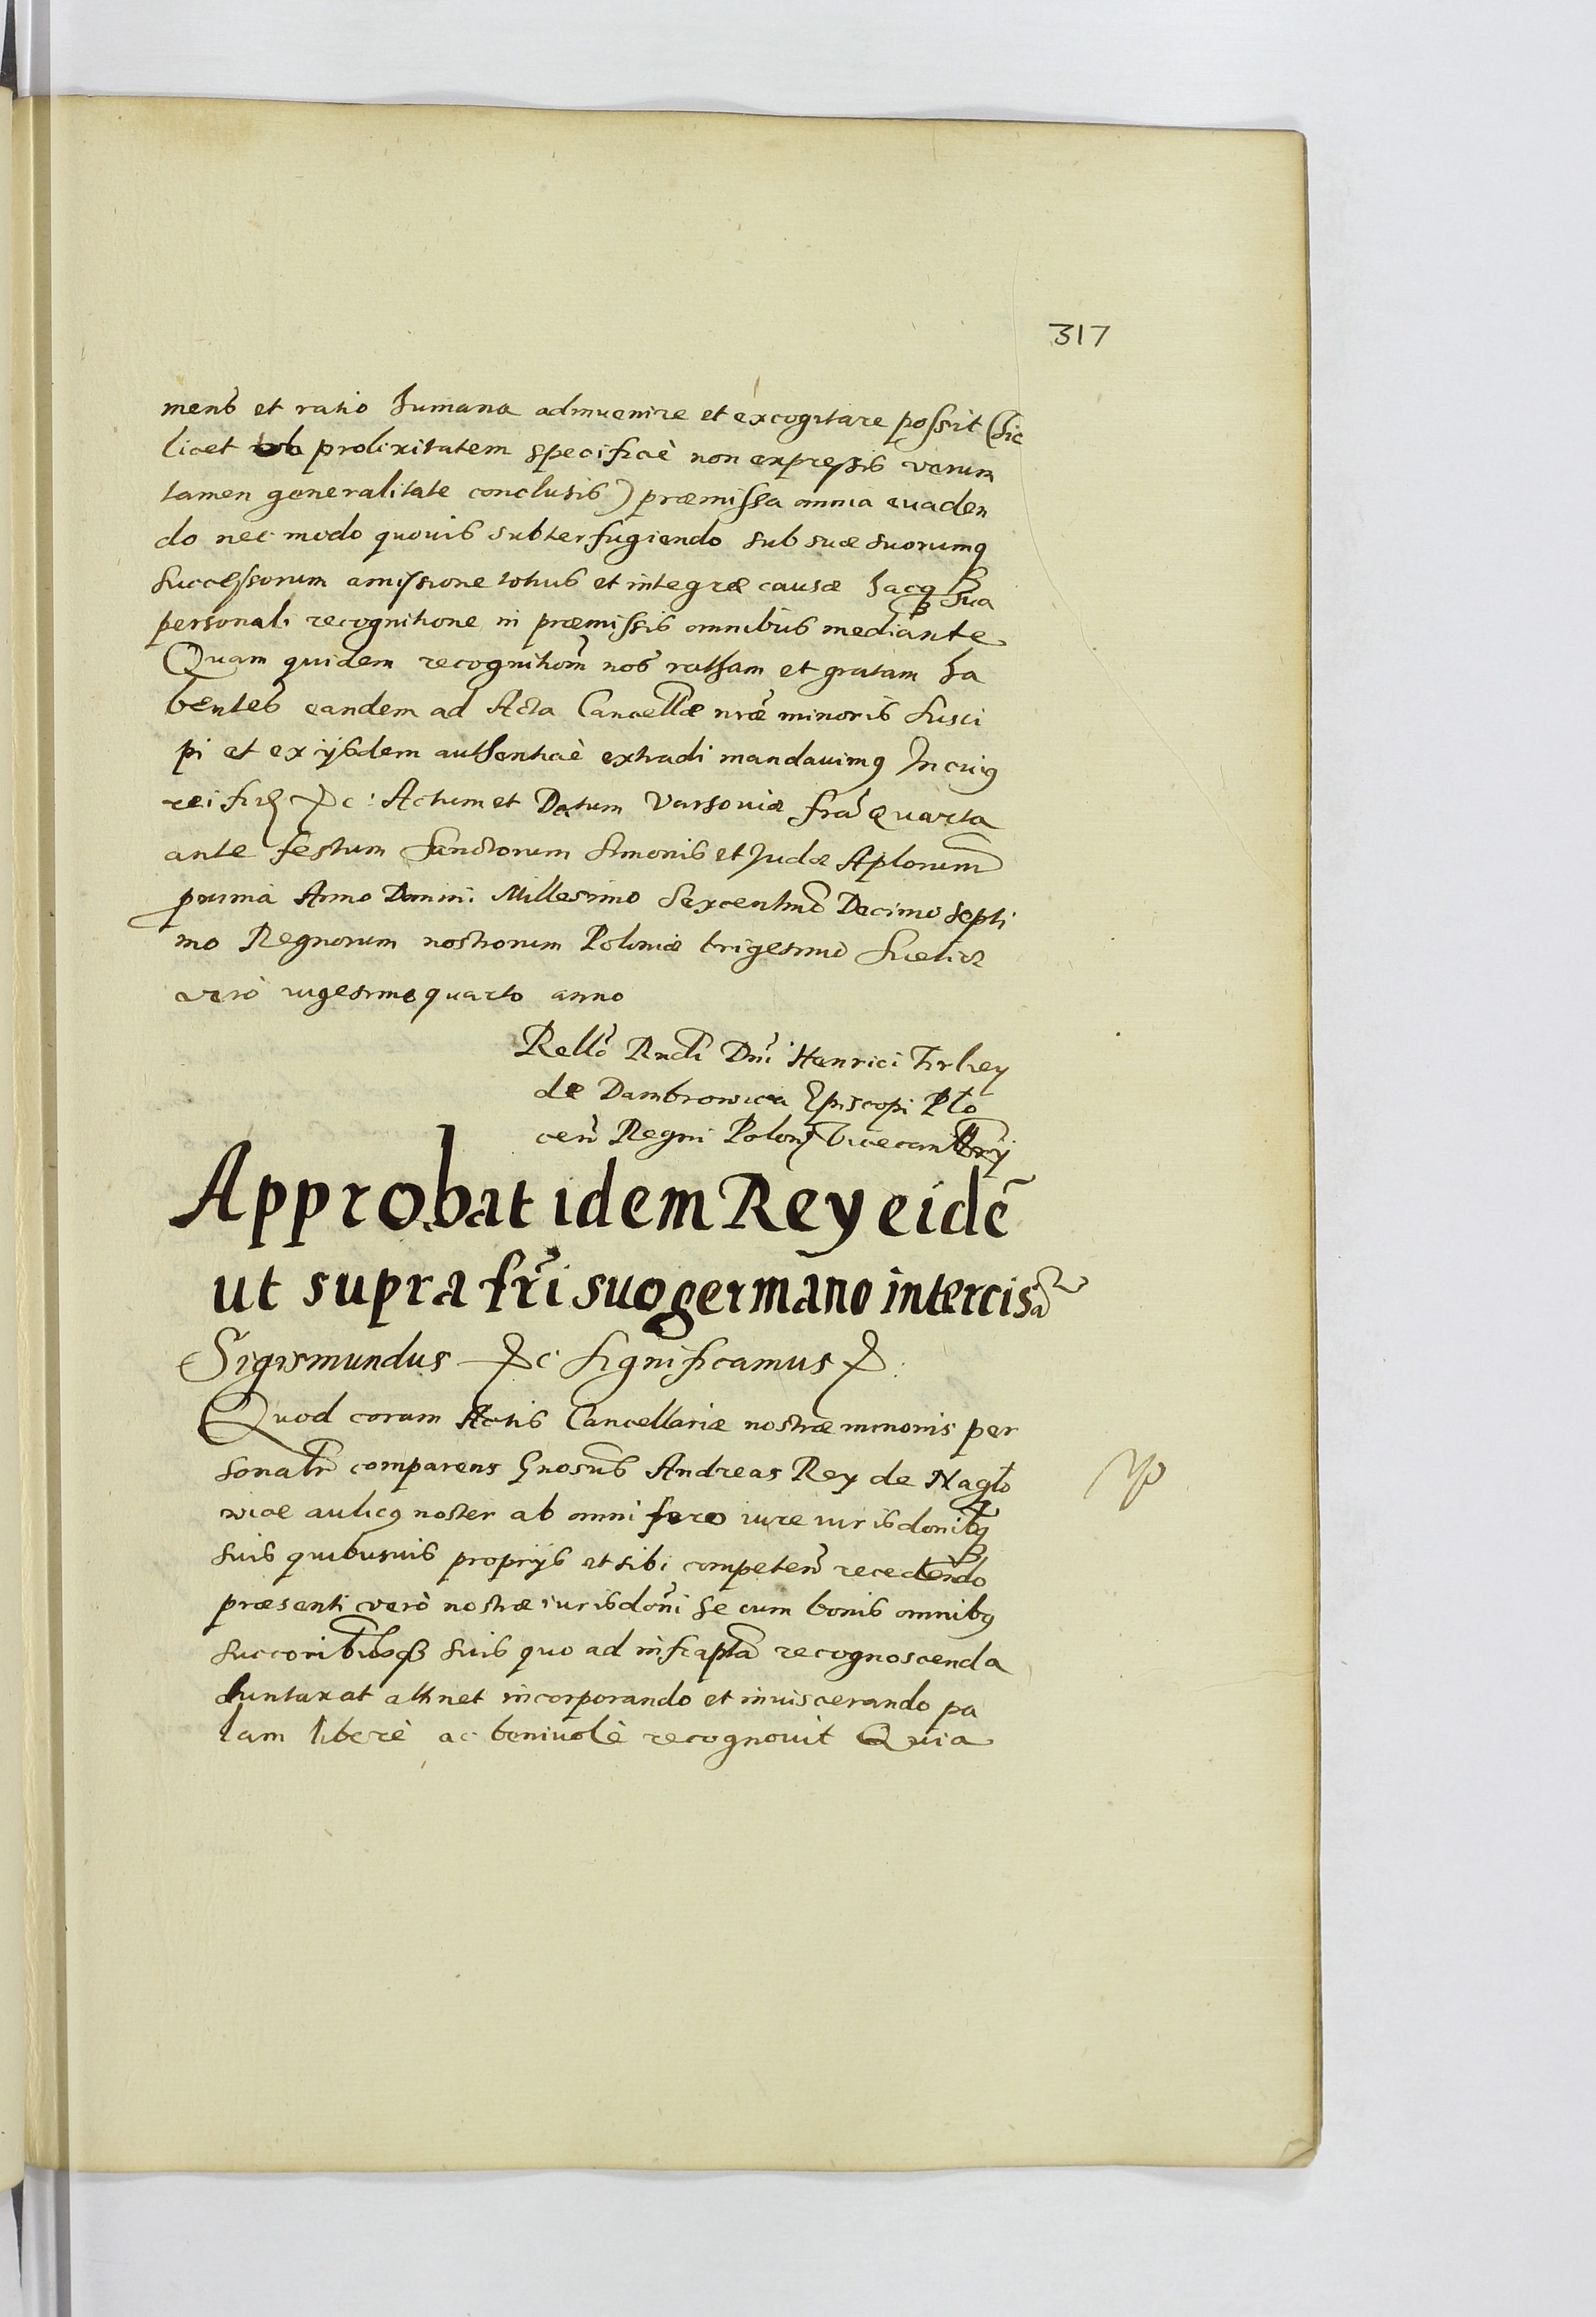 317
mens et ratio humana adinuenire et excogitare possit (hic
licet ob prolixitatem specificè non expressis verum
tamen generalitate conclusis) præmissa omnia euaden
do nec modo quouis subterfugiendo sub suæ suorumq
successorum amissione totius et integræ causæ hacq sua
personali recognitione in præmissis omnibus mediante
Quam quidem recognitioñ nos ratham et gratam ha
bentes eandem ad Acta Cancellæ nræ minoris susci
pi et ex ijsdem authenticè extradi mandauimq In cuiq
rei fid &c: Actum et Datum Varsouiæ fra quarta
ante festum Sanctorum Simonis et Judæ Aplorum
proxima Anno Domini Millesimo Sexcentmo Decimo septi
mo Regnorum nostrorum Poloniæ trigesimo Sueciæ
verò vigesimo quarto anno
Rello Rndi Dni Henrici Firley
de Dambrowica Episcopi Plo
cen Regni Polon Vicecancellrij
Approbat idem Rey eidẽ
ut supra fri suo germano intercisã
Sigismundus &c significamus &.
Quod coram Actis Cancellariæ nostræ minoris per
sonalr comparens Gnosus Andreas Rey de Naglo
wice aulicq noster ab omni foro iure iurisdonibq
suis quibusuis proprijs et sibi competen recedendo
præsenti verò nostræ iurisdoni se cum bonis omnibq
succoribusq suis quo ad infrapta recognoscenda
duntaxat attinet incorporando et inuiscerando pa
lam liberè ac beniuolè recognouit Quia